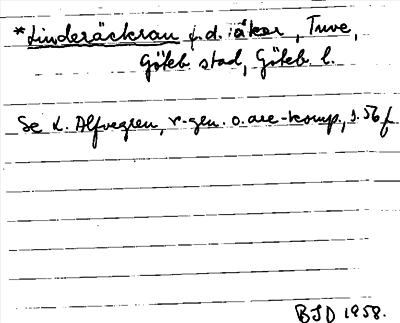 *Linderäckran f.d. åker, Tuve,
Göteb. stad, Göteb. l.
Se L. Alfvegren, r-gen. o. are-komp., s. 56 f.
BJD 1958.